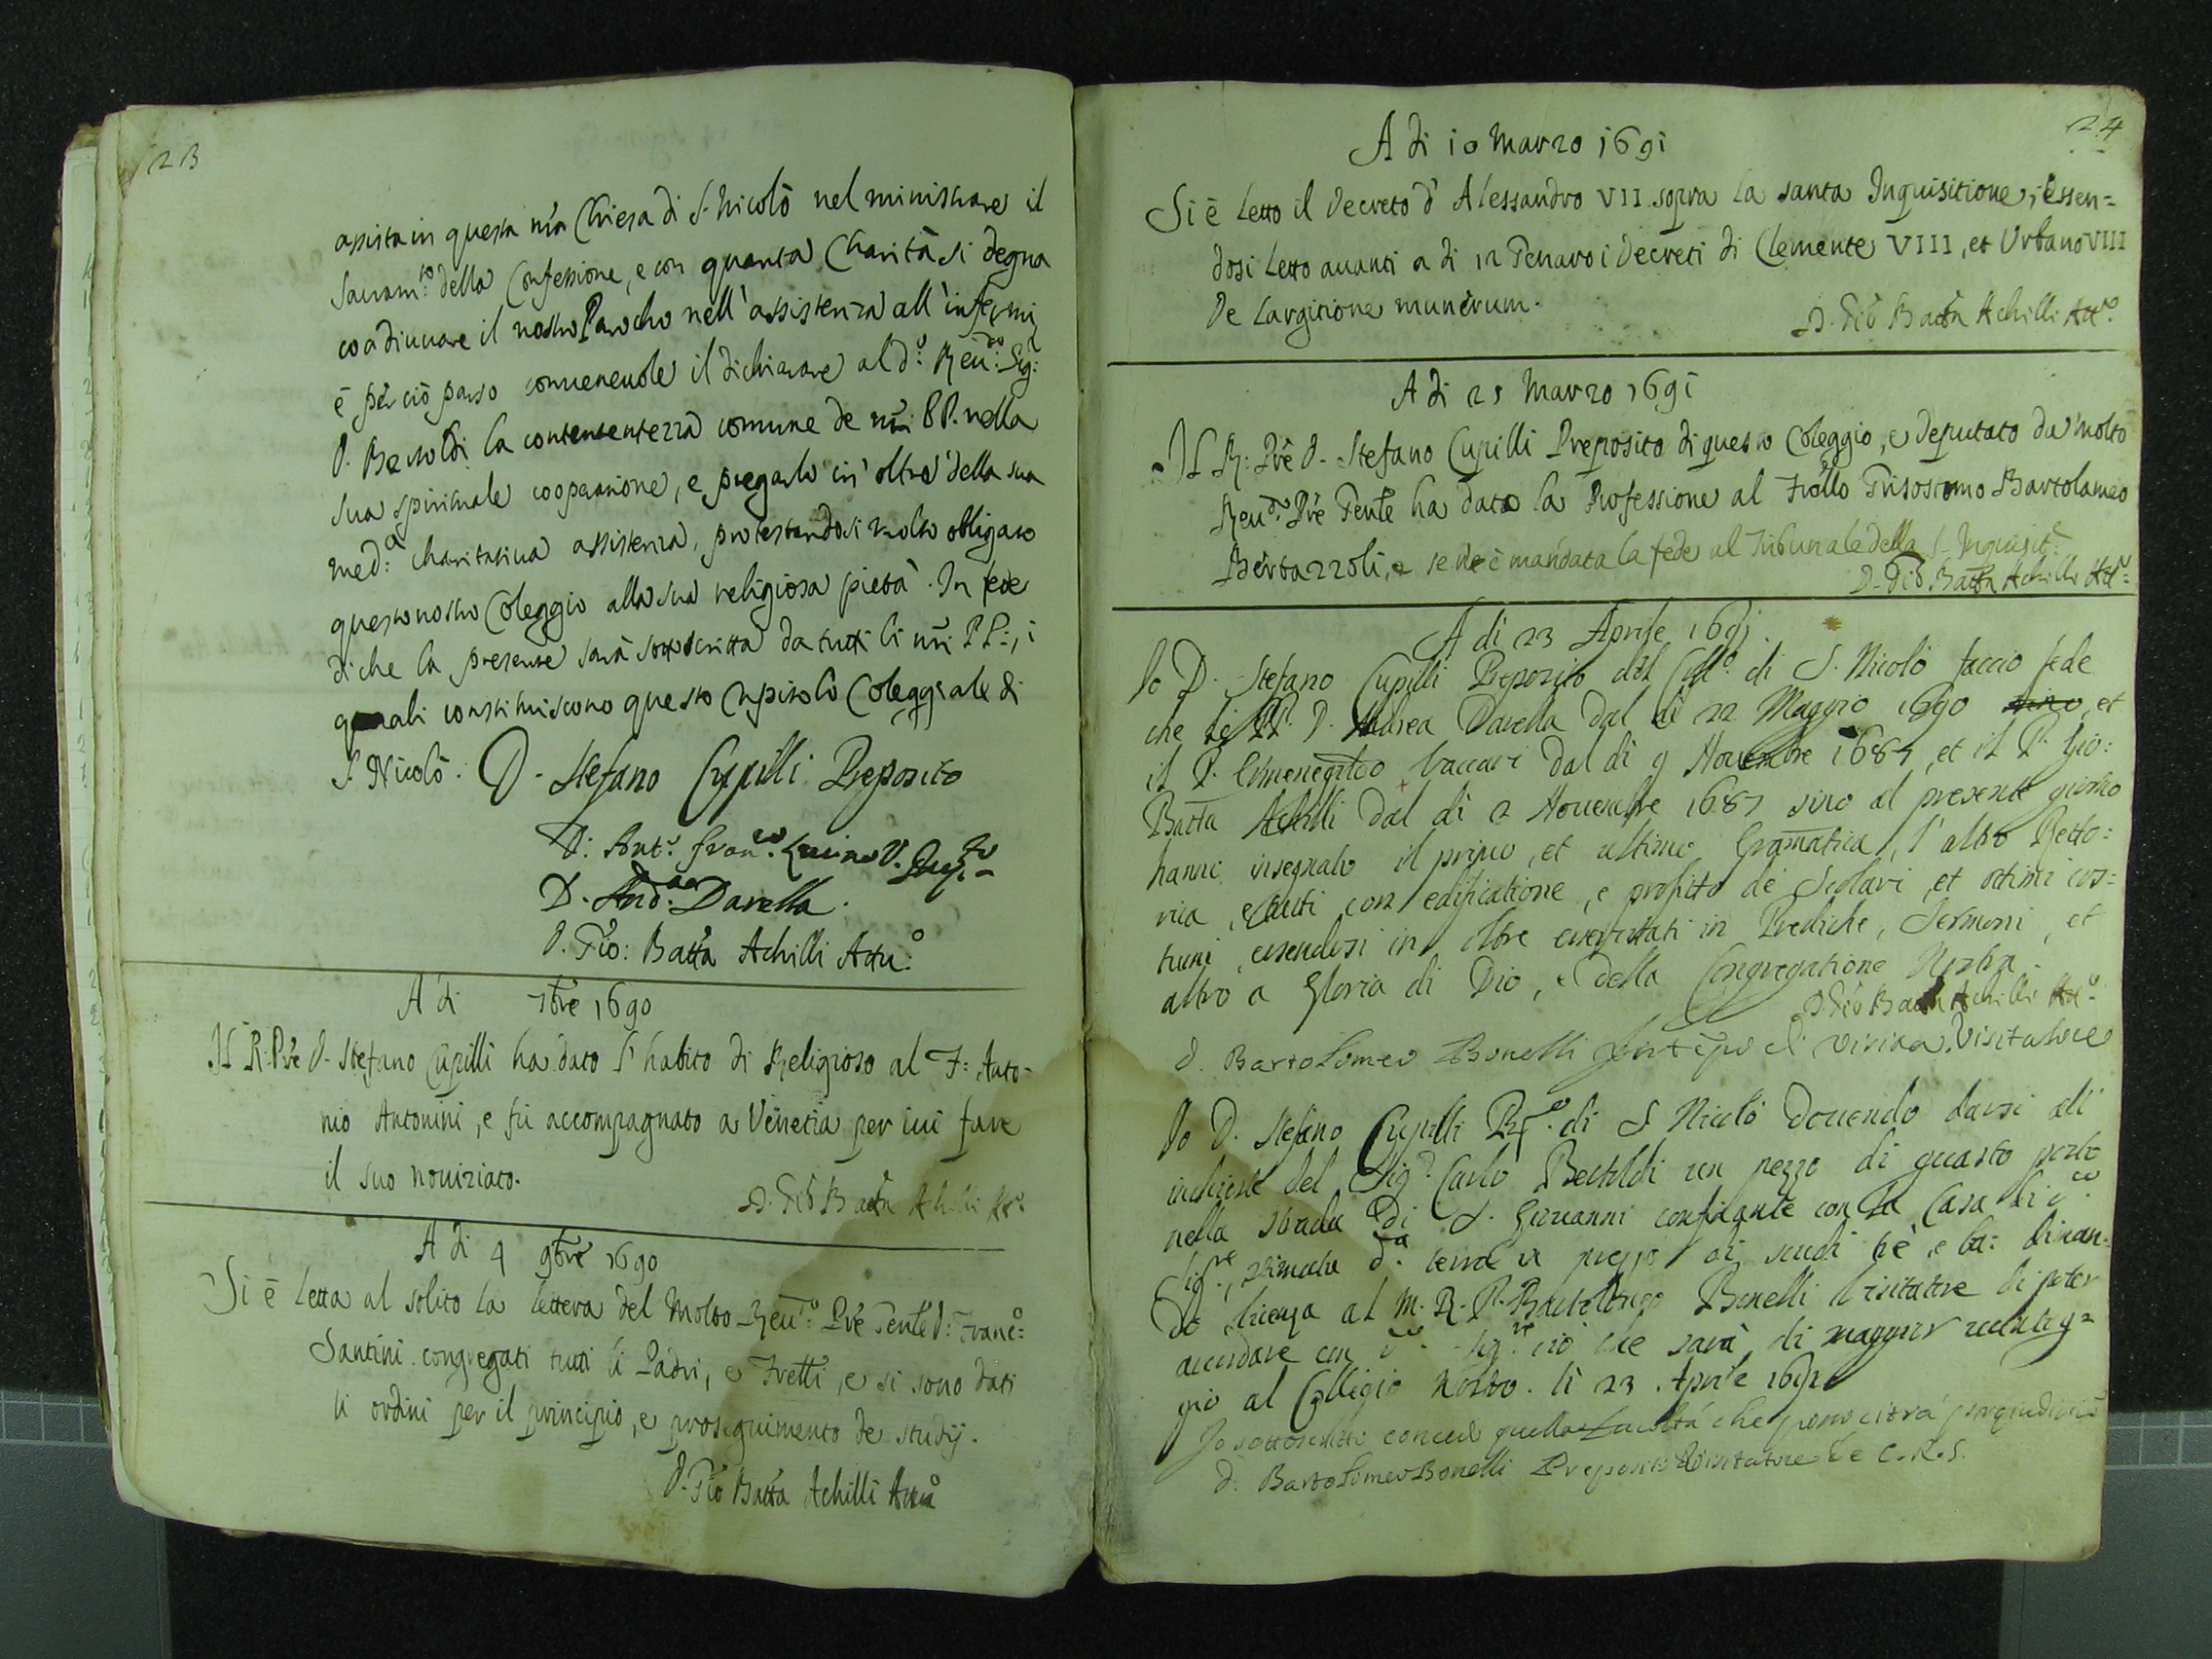 23
assista in questa nra Chiesa di S. Nicolò nel ministrare il
Sacram:to della Confessione, e con quanta Charità si degna
coadiuuare il nostro Parocho nell'assistenza all'infermi
è perciò parso conueneuole il dichiarare al d:o Reu:do Sig:r
D. Bertoldi la contentezza comune de nri PP. nella
sua spirituale cooperatione, e pregarlo in oltre della sua
med:a charitatiua assistenza, protestandosi molto obligato
questo nostro Coleggio alla sua religiosa pietà. In fede
di che la presente sarà sottoscritta da tutti li nri PP:, i
quali constituiscono questo Capitolo Coleggiale di
S. Nicolò. D. Stefano Cupilli Preposito
D: Ant:o Fran:co V.
D. And:ea Davella.
D. Gio: Batta Achilli Attu:o
A di 7bre 1690
Il R: Pre D. Stefano Cupilli ha dato l'habito di Religioso al F: Anto-
nio Antonini, e fù accompagnato a Venetia per iui fare
il suo nouiziato.
D. Gio Batta Achilli Att:o
A di 4 9bre 1690
Si è letta al solito la lettera del Molto Reu:do Pre Gente D: Franc:o
Santini congregati tutti li Padri, e Frelli, e si sono dati
li ordini per il principio, e proseguimento de studij.
D. Gio Batta Achilli Attu:o
24
A di 10 Marzo 1691
Si è letto il Decreto d'Alessandro VII sopra la santa Inquisitione, essen=
dosi letto auanti a di 12 Genaro i Decreti di Clemente VIII, et Urbano VIII
De Largitione munerum.
D. Gio Batta Achilli Att:o
A di 25 Marzo 1691
Il R: Pre D. Stefano Cupilli Preposito di questo Coleggio, e Deputato da molto
Reu:do Pre Gente ha dato la Professione al Frello Grisostomo Bartolameo
Bertazzoli, e se ne è mandata la fede al Tribunale della S. Inquisit:e
D. Gio Batta Achilli Att:o
A di 23 Aprile 1691.
Io D. Stefano Cupilli Preposito del Coll:o di S. Nicolò faccio fede
che li PP. D. Andrea Davella dal dì 22 Maggio 1690 sino, et
il P. Ermenegildo Vaccari dal dì 9 Nouembre 1687, et il P. Gio:
Batta Achilli dal dì 2 Nouembre 1687 sino al presente giorno
hanno insegnato il primo, et ultimo Gramatica, l'altro Retto:
rica, e tutti con edificatione, e profitto de Scolari, et ottimi cos=
tumi, essendosi in oltre esercitati in Prediche, Sermoni, et
altro a Gloria di Dio, e della Congregatione Nostra.
D. Gio Batta Achilli Att:o
D. Bartolomeo Bonelli di visita Visitatore
Io D. Stefano Cupilli di S Nicolò douendo darsi all'
del Sig:r Carlo Bertoldi un pezzo di guasto posto
nella strada di S. Giouanni confinante con la Casa di d:o
Sig:re, stimata d:a terra a prezzo di scudi trè, e ba:
Dò licenza al M. R. P. Bartolomeo Bonelli Visitatore di poter
accordare con d:o Sig:re ciò che sarà di maggior uantag=
gio al Collegio Nostro. lì 23. Aprile 1691
Io sottoscritto concedo quella facoltà che posso citra
D. Bartolomeo Bonelli Preposito Visitatore de C. R. S.